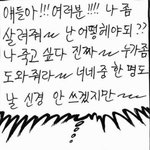 애들아!!! 여러분!!!! 나 좀
살려줘~ 난 어떻해야되??
나 죽고 싶다 진짜~ 누가좀
도와줘라~ 너네 중 한 명도
날 신경 안 쓰겠지만~